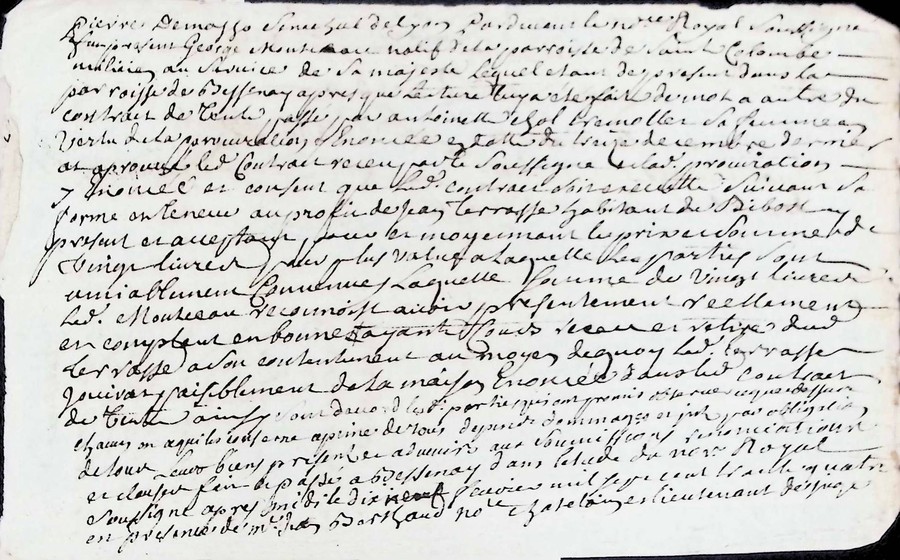 pierre Demasso Senechal de Lyon Pardevant le no.re Royal Soussigne
fut present George Mousseau natif de la parroisse de Saint Colombe
milicien au Service de Sa majesté Lequel etant de present dans la
parroisse de Bessenay apres que Lecture luy a eté fait de mot a autre du
contrat de Vente passé par antoinette Sa femme en
Vertu de la procuration Enoncée en datte du treize decembre dernier
at aprouvé led. Contrat receu par le Soussigne et lad. procuration
y enoncee et consent que led. contrat soit executte Suivant Sa
forme en teneur au profit de Jean terrasse habitant de Bibost
present et acceptant, pour et moyennant le prix et Somme de
Vingt livres pour plus value a Laquelle les parties Sont
amiablement Convenues Laquelle Somme de Vingt livres
led. Mousseau reconnoist avoir presentement reellement
et comptent en bonne ayant Cours receu et retiré dud.
terrasse a son contentement au moyen dequoy led. terrasse
jouira paisiblement de la maison Enoncée dans led. contrat
de Vente ainsy Sont d'acord lesd. parties qui ont promis observer ce que dessus
chacun en ce qui les conserne a peine de tous depens dommages et par obligation
de tous Leurs biens presents et advenir aux Soumissions renonciations
et clauses fait et passé a Bessenay dans letude du no.re Royal
Soussigne apres midi le dix neuf Janvier mil sept cent trente quatre
en presence de m.re Berthaud no.re Chatelain et lieutenant